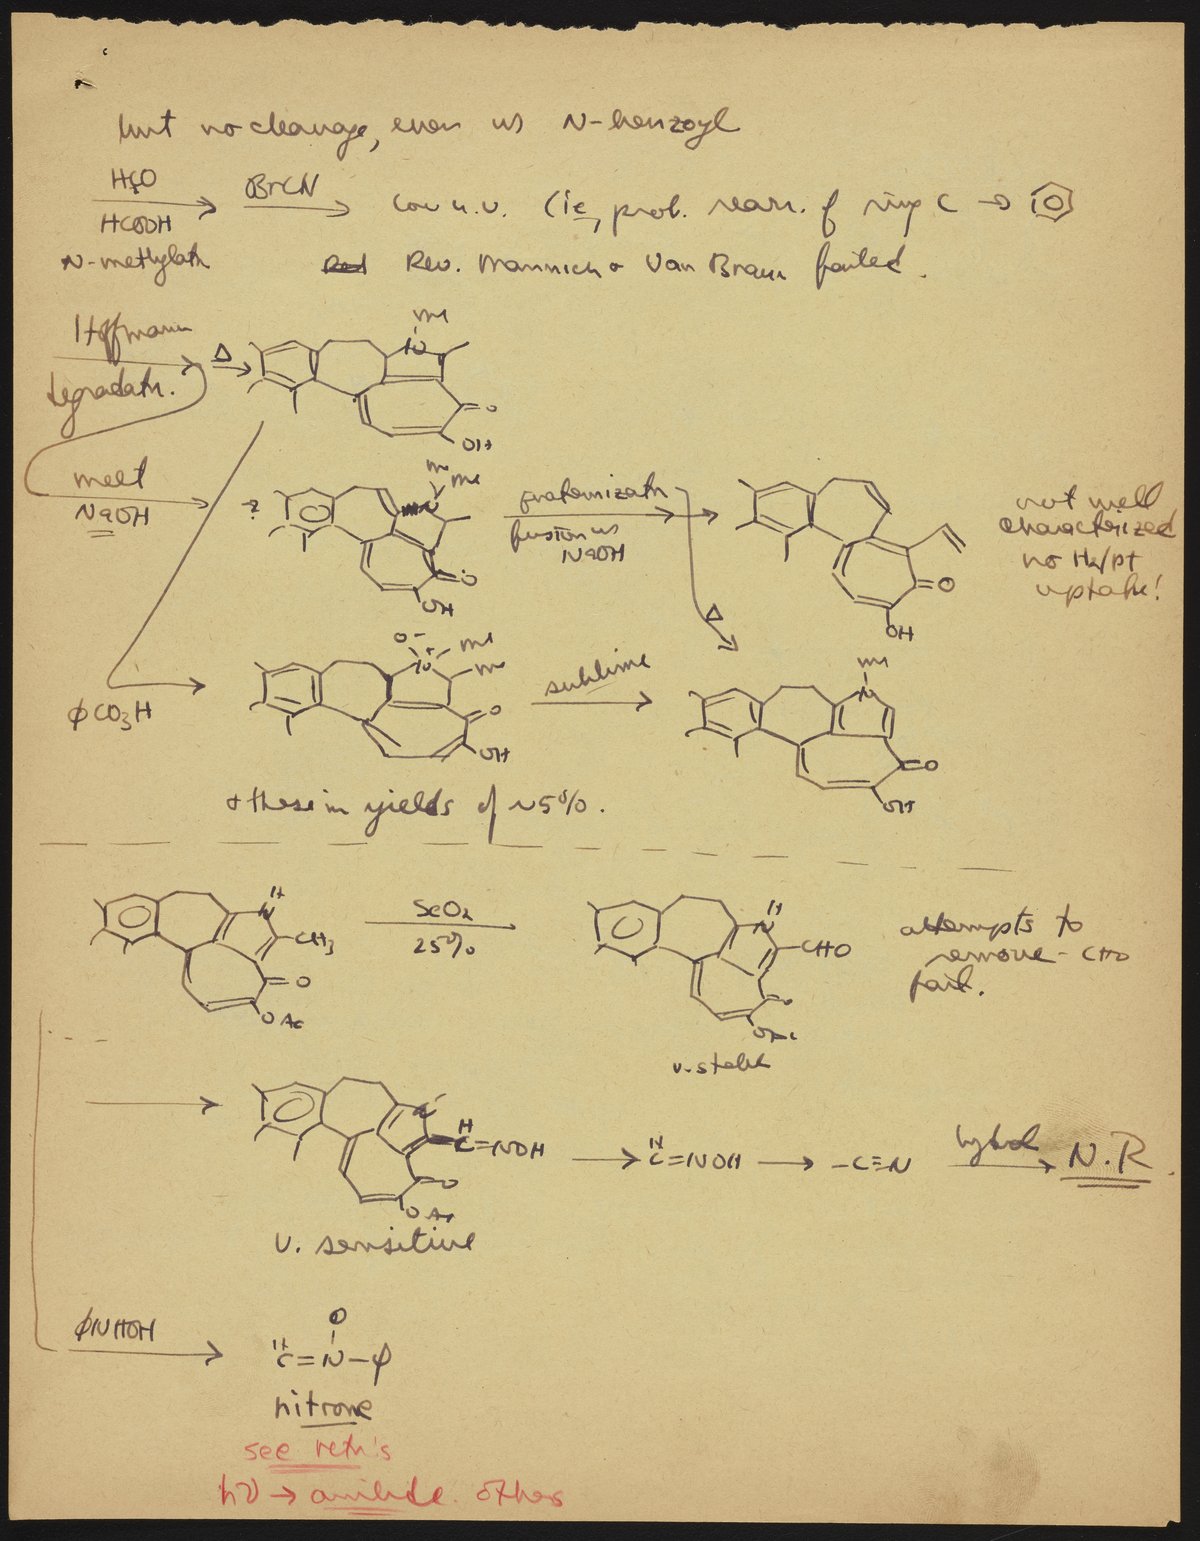 but no cleavage, even as N-benzoyl
H₂O
HCOOH
N-methylatn
BrCN
low u.v. (ie, prob. rearr. of ring C →
Rev. Mannich & Van Braun failed.
Hoffmann
degradatn.
Δ
me
N
O
OH
melt
NaOH
?
me
me
N
O
OH
protonizatn
fusion w
NaOH
Δ
O
OH
not well
characterized
no H₂/pt
uptake!
φCO₃H
O⁻
N⁺
me
me
O
OH
sublime
me
N
O
OH
& these in yields of ~5%.
H
N
CH₃
O
OAc
SeO₂
25%
H
N
CHO
O
OAc
v. stable
attempts to
remove -CHO
fail.
N
H
C=NOH
O
OAc
v. sensitive
H
C=NOH
-C≡N
hydrol
N.R.
φNHOH
O
H
C=N-φ
nitrone
see retn's
hν → anilide. others